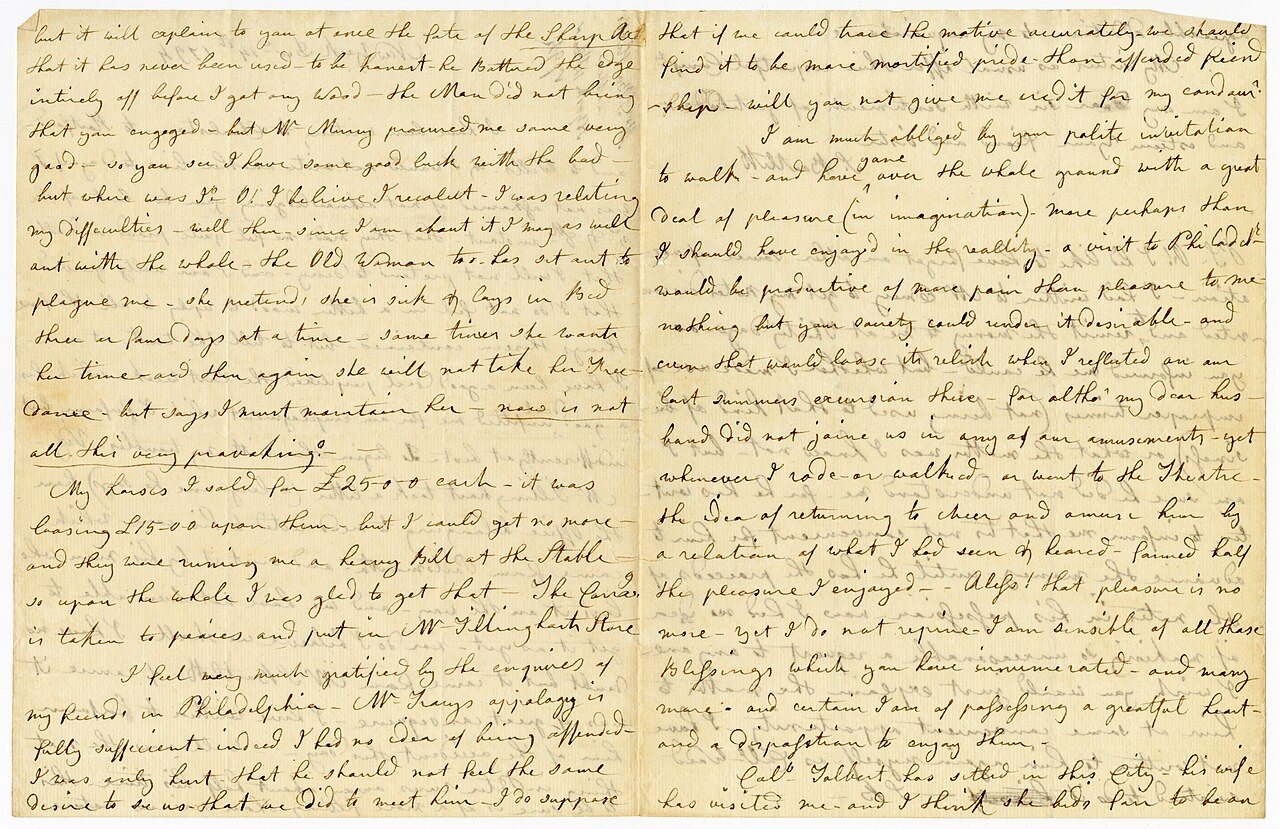 but it will explain to you at once the fate of the Sharp Axe
that it has never been used - to be honest - he Battred the edge
intirely off before I got any Wood - the Man did not bring
that you engaged - but Mr Murry procured me some very
good - so you see I have some good luck with the bad -
but where was I? O! I believe I recolect - I was relating
my difficulties - well then - since I am about it I may as well
out with the whole - the Old Woman too has set out to
plague me - she pretends she is sick & lays in Bed
three or four days at a time - some times she wants
her time - and then again she will not take her Free-
dom - but says I must maintain her - now is not
all this very provoking?
My horses I sold for £25-0-0 cash - it was
loosing £15-0-0 upon them - but I could get no more -
and they were runing me a heavy Bill at the Stable -
so upon the whole I was glad to get that - The Carriage
is taken to peaices and put in Mr Tillinghasts Store
I feel very much gratified by the enquires of
my friends in Philadelphia - Mr appology is
fully sufficient - indeed I had no idea of being affended -
I was only hurt - that he should not feel the same
desire to see us that we did to meet him - I do suppose
that if we could trace the motive accurately - we should
find it to be more mortified pride than affended friend
-ship will you not give me credit for my candour?
I am much obliged by your polite invitation
to walk - and have gone over the whole ground with a great
Deal of pleasure (in imagination) - more perhaps than
I should have enjoyed in the reallity - a visit to Philadela
would be productive of more pain than pleasure to me -
nothing but your society could render it desirable - and
even that would loose its relish when I reflected on our
last summers excursion there - for altho' my dear hus-
band did not joine us in any of our amusements - yet
whenever I rode - or walked - or went to the Theatre -
the idea of returning to cheer and amuse him by
a relation of what I had seen & heared - formed half
the pleasure I enjoyed - - Alass! that pleasure is no
more - yet I do not repine - I am sensible of all those
Blessings which you have innumerated - and many
more - and certain I am of possessing a greatful heart -
and a disposition to enjoy them -
Colo Talbert has setled in this City - his wife
has visited me - and I think she bids fair to be an